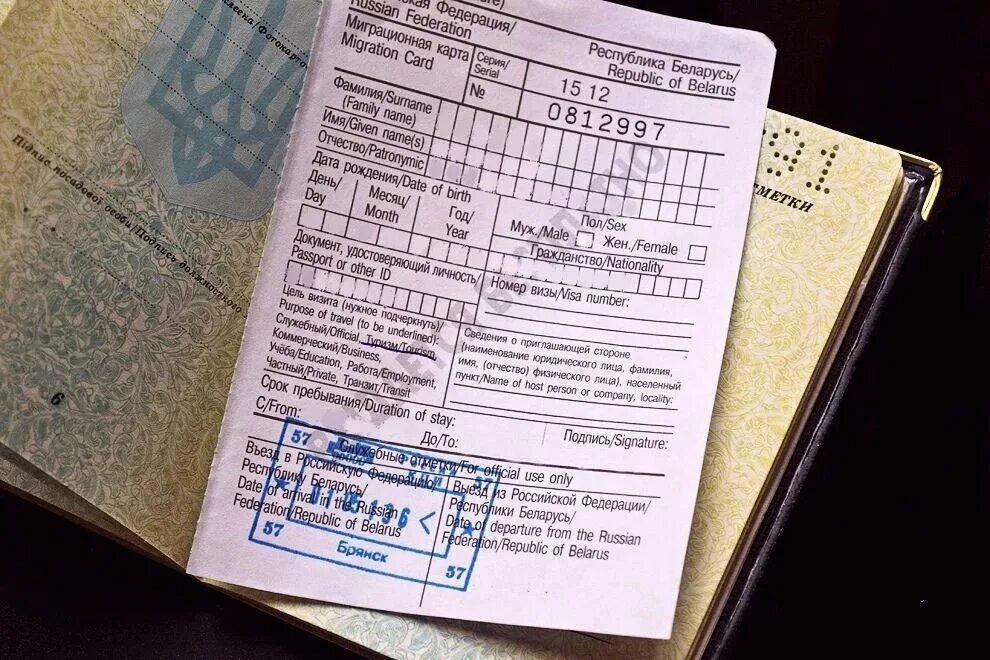 Федерация/
Russian Federation
Республика Беларусь/
Republic of Belarus
Миграционная карта
Migration Card
Серия/
Serial
15 12
№
0812997
Фамилия/Surname
(Family name)
Имя/Given name(s)
Отчество/Patronymic
Дата рождения/Date of birth
День/
Day
Месяц/
Month
Год/
Year
Пол/Sex
Муж./Male
Жен./Female
Гражданство/Nationality
Документ, удостоверяющий личность/
Passport or other ID
Номер визы/Visa number:
Цель визита (нужное подчеркнуть)/
Purpose of travel (to be underlined):
Служебный/Official, Туризм/Tourism,
Коммерческий/Business,
Учёба/Education, Работа/Employment,
Частный/Private, Транзит/Transit
Сведения о приглашающей стороне
(наименование юридического лица, фамилия,
имя, (отчество) физического лица), населенный
пункт/Name of host person or company, locality:
Срок пребывания/Duration of stay:
С/From:
До/To:
Подпись/Signature:
Служебные отметки/For official use only
Въезд в Российскую Федерацию/
Республику Беларусь/
Date of arrival in the Russian
Federation/Republic of Belarus
Выезд из Российской Федерации/
Республики Беларусь/
Date of departure from the Russian
Federation/Republic of Belarus
57
57
57
57
Брянск
Підпис посадової особи/Подпись должностного
6
ОТМЕТКИ